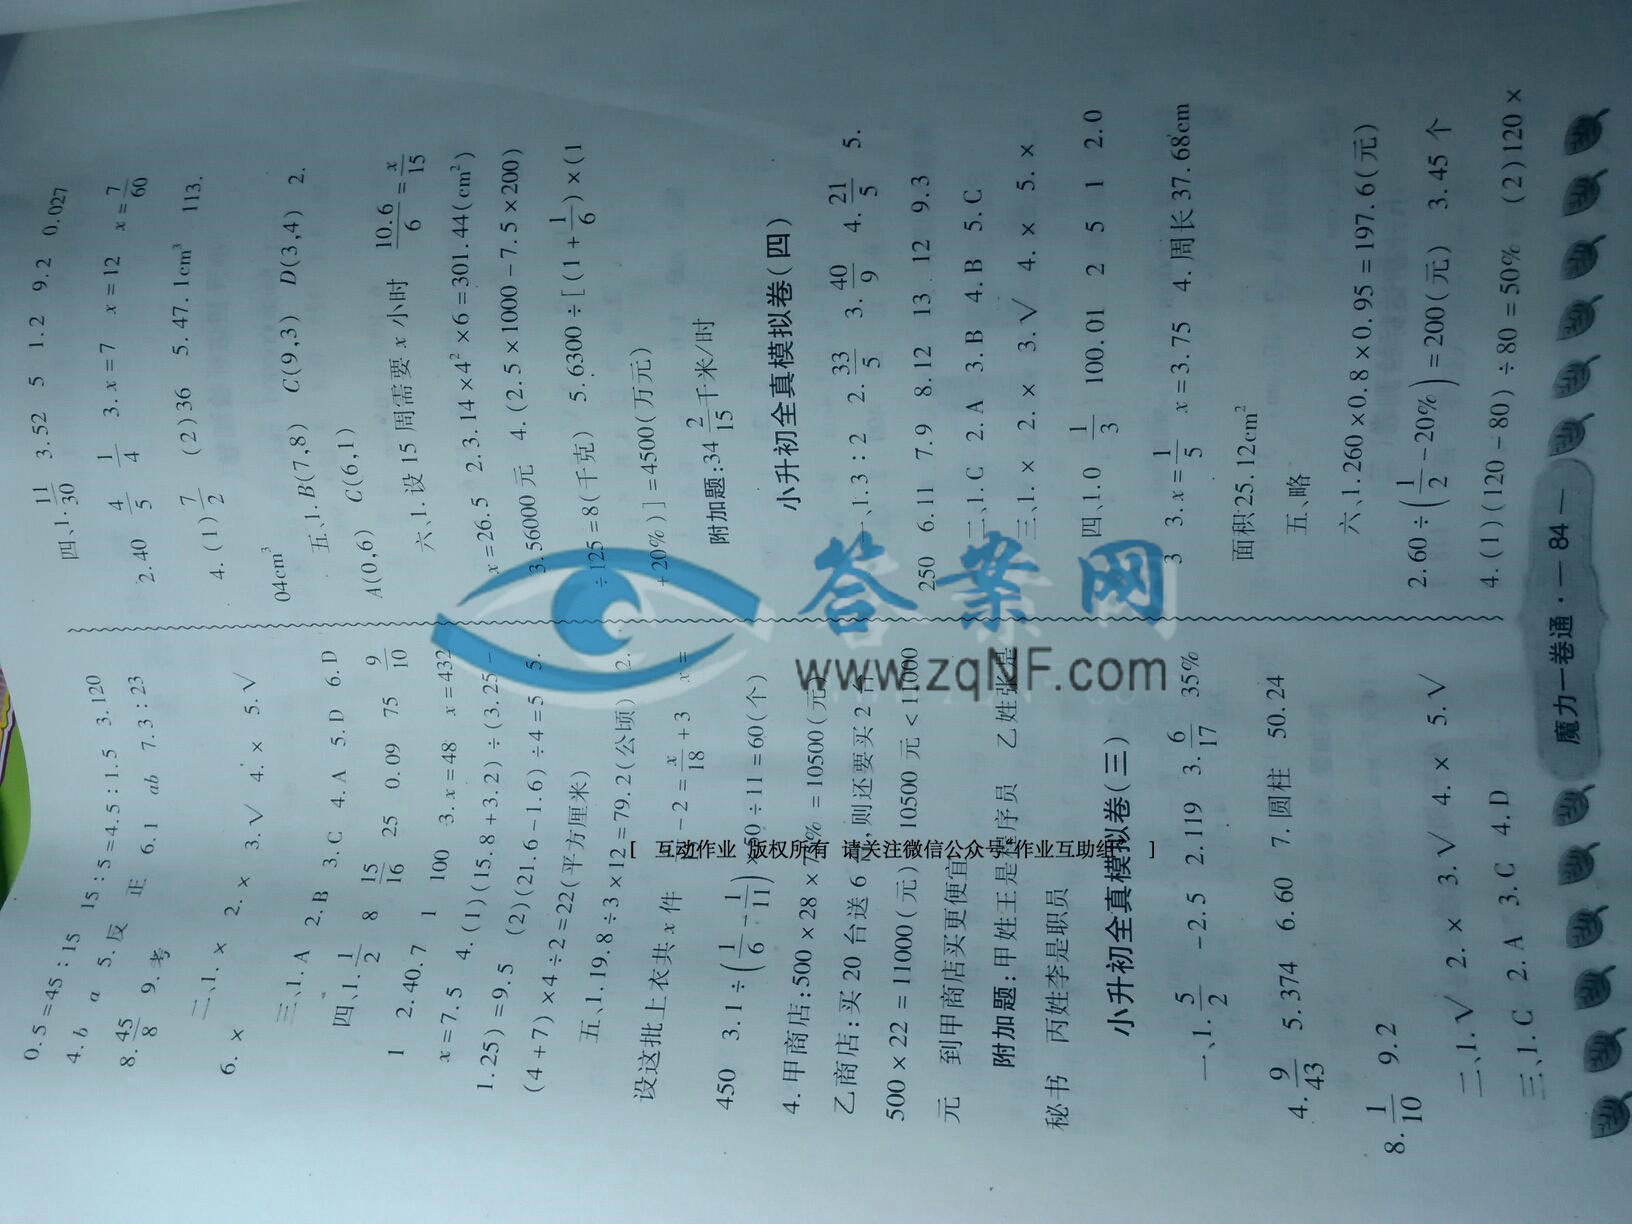 0.5=45:15 15:5=4.5:1.5 3.120
4.b a 5.反 正 6.1 ab 7.3:23
8.45/8 9.考
二、1.× 2.× 3.√ 4.× 5.√
6.×
三、1.A 2.B 3.C 4.A 5.D 6.D
四、1.1/2 8 15/16 25 0.09 75 9/10
1 2.40.7 1 100 3.x=48 x=432
x=7.5 4.(1)(15.8+3.2)÷(3.25-
1.25)=9.5 (2)(21.6-1.6)÷4=5 5.
(4+7)×4÷2=22(平方厘米)
五、1.19.8÷3×12=79.2(公顷) 2.
设这批上衣共x件 -2=x/18+3 x=
450 3.1÷(1/6-1/11)×50÷11=60(个)
4.甲商店:500×28×75%=10500(元)
乙商店:买20台送6台,则还要买2台
500×22=11000(元) 10500元<11000
元 到甲商店买更便宜
附加题:甲姓王是程序员 乙姓张是
秘书 丙姓李是职员
小升初全真模拟卷(三)
一、1.5/2 -2.5 2.119 3.6/17 35%
4.9/43 5.374 6.60 7.圆柱 50.24
8.1/10 9.2
二、1.√ 2.× 3.√ 4.× 5.√
三、1.C 2.A 3.C 4.D
四、1.11/30 3.52 5 1.2 9.2 0.027
2.40 4/5 1/4 3.x=7 x=12 x=7/60
4.(1)7/2 (2)36 5.47.1cm³ 113.
04cm³
五、1.B(7,8) C(9,3) D(3,4) 2.
A(0,6) C(6,1)
六、1.设15周需要x小时 10.6/6=x/15
x=26.5 2.3.14×4²×6=301.44(cm²)
3.56000元 4.(2.5×1000-7.5×200)
÷125=8(千克) 5.6300÷[(1+1/6)×(1
+20%)]=4500(万元)
附加题:34 2/15千米/时
小升初全真模拟卷(四)
一、1.3:2 2.33/5 3.40/9 4.21/5 5.
250 6.11 7.9 8.12 13 12 9.3
二、1.C 2.A 3.B 4.B 5.C
三、1.× 2.× 3.√ 4.× 5.×
四、1.0 1/3 100.01 2 5 1 2.0
3 3.x=1/5 x=3.75 4.周长37.68cm
面积25.12cm²
五、略
六、1.260×0.8×0.95=197.6(元)
2.60÷(1/2-20%)=200(元) 3.45个
4.(1)(120-80)÷80=50% (2)120×
魔力一卷通·—84—
答案网
www.zqNF.com
[ 互动作业 版权所有 请关注微信公众号:作业互助组 ]